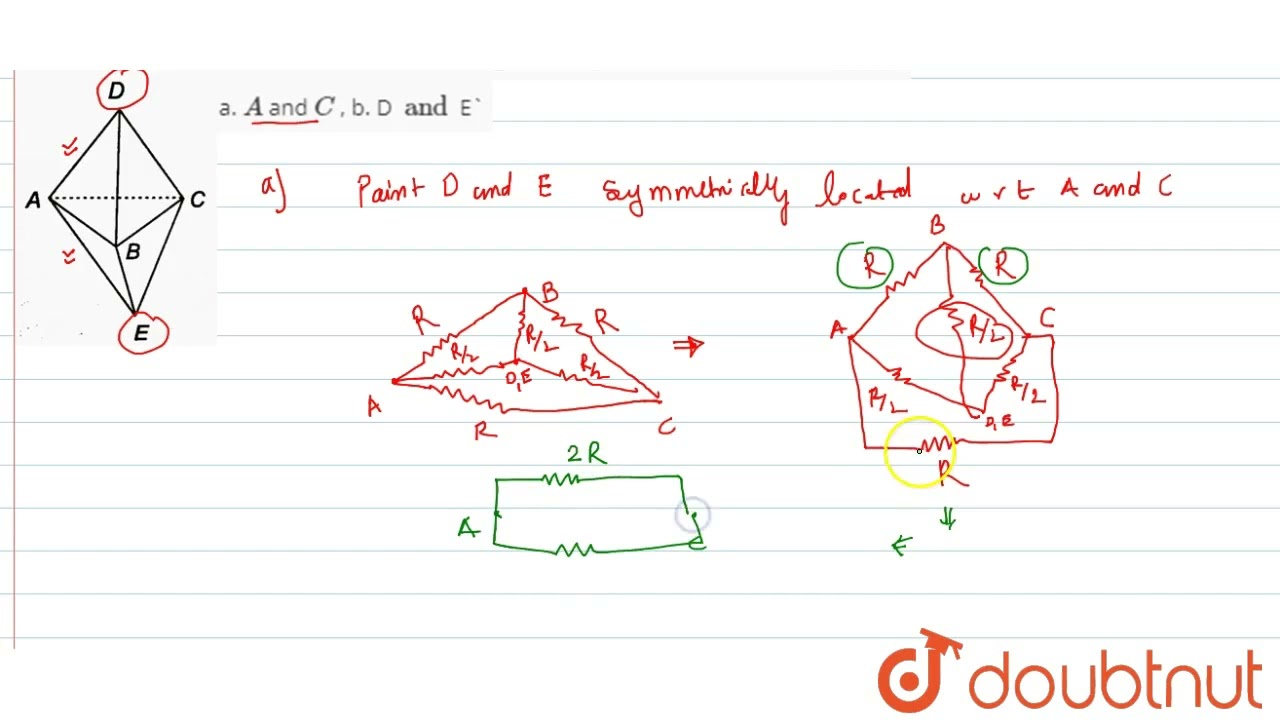 D
a. A and C , b. D and E`
A
C
B
E
a) Point D and E symmetrically located w r t A and C
B
R
R
R/2
R/2
R/2
D,E
A
R
C
⇒
B
R
R
A
C
R/2
R/2
R/2
D,E
R
⇓
←
2R
A
C
doubtnut